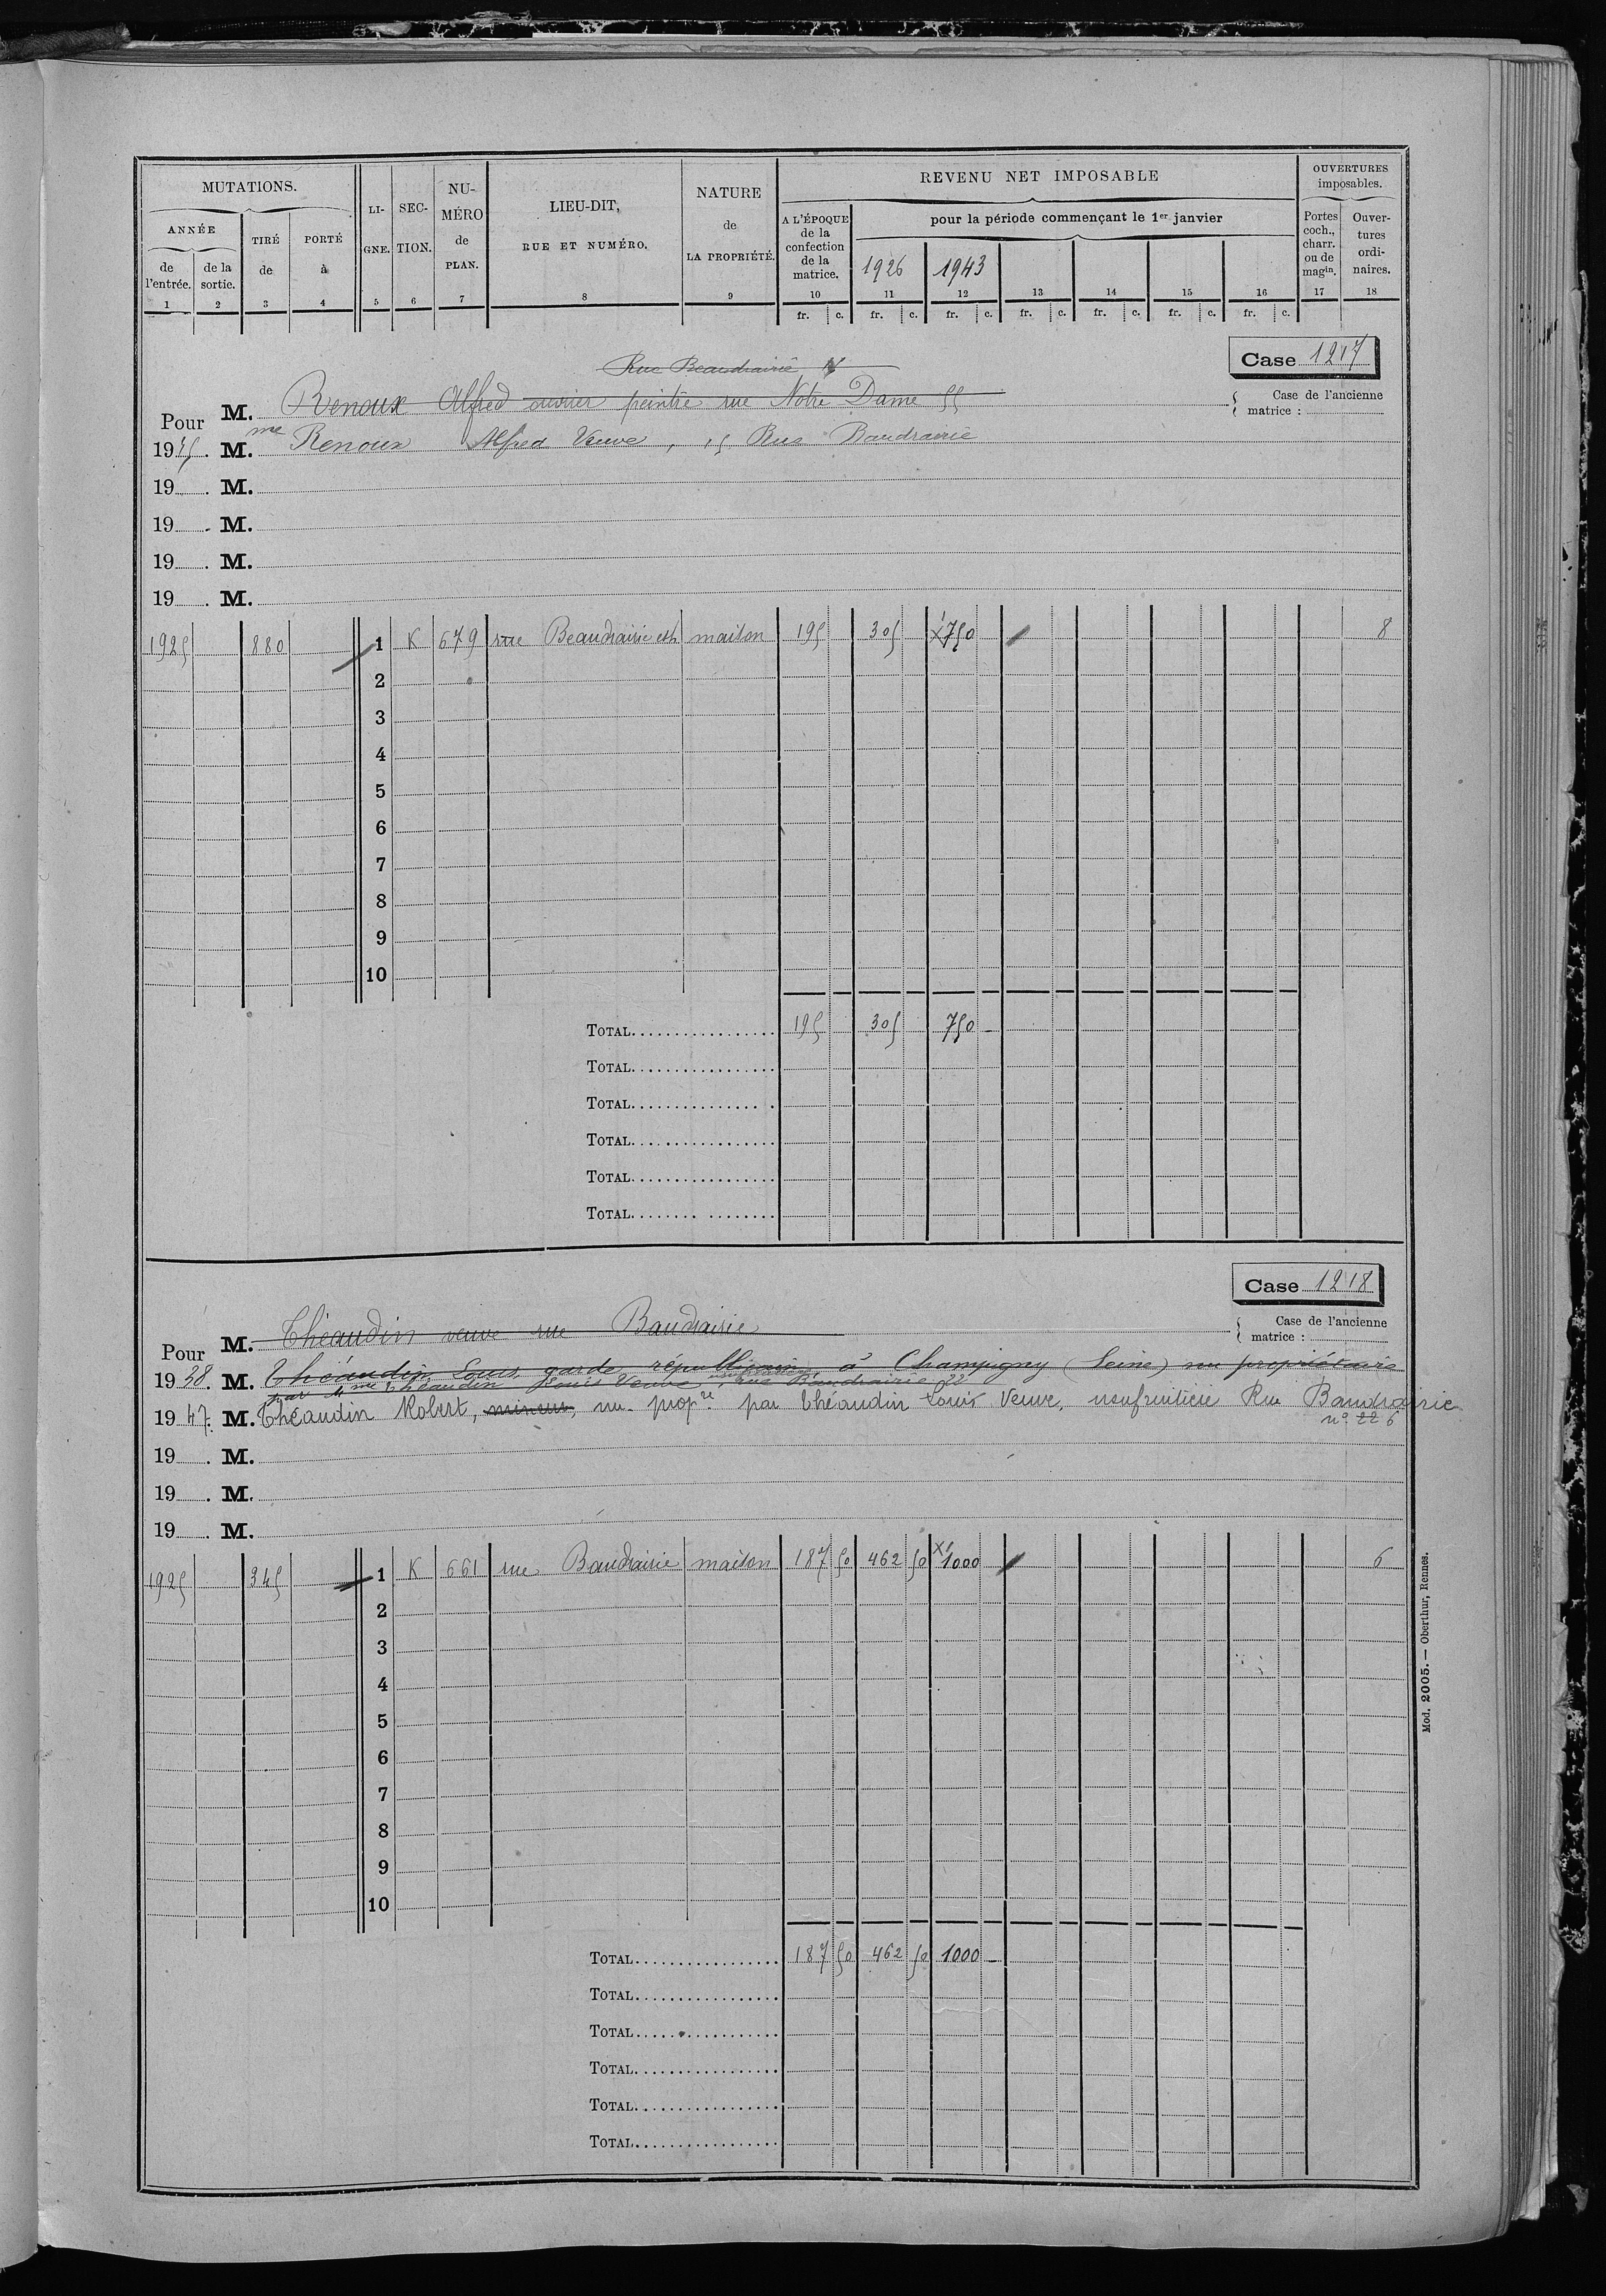 MUTATIONS.
ANNÉE
de l'entrée.
de la sortie.
TIRÉ de
PORTÉ à
LI-GNE.
SEC-TION.
NU-MÉRO de PLAN.
LIEU-DIT,
RUE ET NUMÉRO.
NATURE de LA PROPRIÉTÉ.
REVENU NET IMPOSABLE
A L'ÉPOQUE de la confection de la matrice.
pour la période commençant le 1er janvier
1926 1943
OUVERTURES imposables.
Portes coch., charr. ou de magin.
Ouver-tures ordi-naires.
1 2 3 4 5 6 7 8 9 10 11 12 13 14 15 16 17 18
fr. c. fr. c. fr. c. fr. c. fr. c. fr. c. fr. c.
Case 1217
Case de l'ancienne matrice :
Rue Beaudrairie
Pour M. Renoux Alfred ouvrier peintre rue Notre Dame 55
1945. Mme Renoux Alfred Veuve, 15 Rue Baudrairie
19 . M.
19 . M.
19 . M.
19 . M.
1925 880 1 K 679 rue Beaudrairie maison 195 305 X 750 8
2
3
4
5
6
7
8
9
10
TOTAL 195 305 750 -
TOTAL
TOTAL
TOTAL
TOTAL
TOTAL
Case 1218
Case de l'ancienne matrice :
Pour M. Théaudin veuve rue Baudrairie
1938. M. Théaudin Louis, garde républicain, à Champigny (Seine) nu propriétaire
par Mme Théaudin Louis Veuve, usufruitière, rue Baudrairie 22
1947. M. Théaudin Robert, mineur, nu-propre par Théaudin Louis Veuve, usufruitière Rue Baudrairie
n° 22 6
19 . M.
19 . M.
19 . M.
1925 345 1 K 661 rue Baudrairie maison 187 50 462 50 X 1000 6
2
3
4
5
6
7
8
9
10
TOTAL 187 50 462 50 1000 -
TOTAL
TOTAL
TOTAL
TOTAL
TOTAL
Mod. 2005. — Oberthur, Rennes.